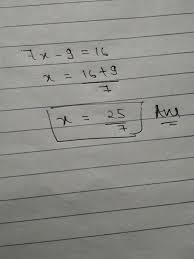 7x - 9 = 16
x = 16+9/7
x = 25/7 Ans